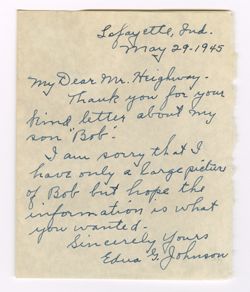 Lafayette, Ind.
May 29-1945
My Dear Mr. Heighway-
Thank you for your
kind letter about my
son "Bob".
I am sorry that I
have only a large picture
of Bob but hope the
information is what
you wanted.
Sincerely Yours
Edna G. Johnson